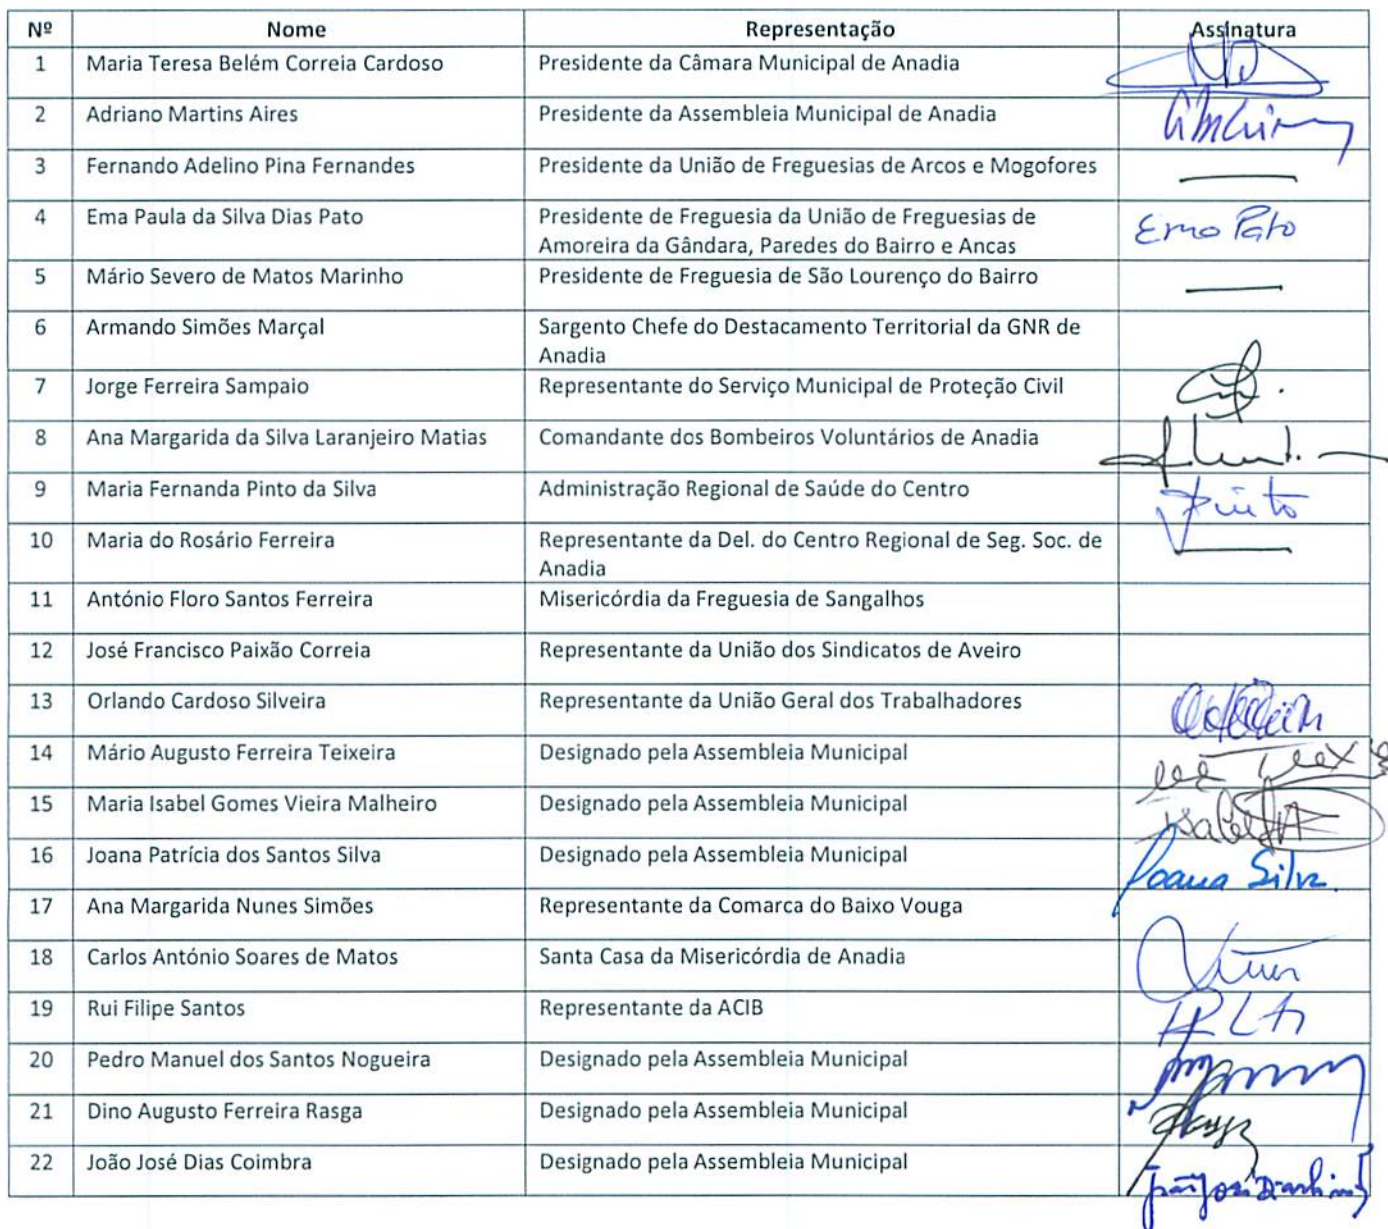 Nº Nome Representação Assinatura
1 Maria Teresa Belém Correia Cardoso Presidente da Câmara Municipal de Anadia
2 Adriano Martins Aires Presidente da Assembleia Municipal de Anadia
3 Fernando Adelino Pina Fernandes Presidente da União de Freguesias de Arcos e Mogofores
4 Ema Paula da Silva Dias Pato Presidente de Freguesia da União de Freguesias de Ema Pato
Amoreira da Gândara, Paredes do Bairro e Ancas
5 Mário Severo de Matos Marinho Presidente de Freguesia de São Lourenço do Bairro
6 Armando Simões Marçal Sargento Chefe do Destacamento Territorial da GNR de
Anadia
7 Jorge Ferreira Sampaio Representante do Serviço Municipal de Proteção Civil
8 Ana Margarida da Silva Laranjeiro Matias Comandante dos Bombeiros Voluntários de Anadia
9 Maria Fernanda Pinto da Silva Administração Regional de Saúde do Centro Pinto
10 Maria do Rosário Ferreira Representante da Del. do Centro Regional de Seg. Soc. de
Anadia
11 António Floro Santos Ferreira Misericórdia da Freguesia de Sangalhos
12 José Francisco Paixão Correia Representante da União dos Sindicatos de Aveiro
13 Orlando Cardoso Silveira Representante da União Geral dos Trabalhadores
14 Mário Augusto Ferreira Teixeira Designado pela Assembleia Municipal
15 Maria Isabel Gomes Vieira Malheiro Designado pela Assembleia Municipal Isabel
16 Joana Patrícia dos Santos Silva Designado pela Assembleia Municipal Joana Silva
17 Ana Margarida Nunes Simões Representante da Comarca do Baixo Vouga
18 Carlos António Soares de Matos Santa Casa da Misericórdia de Anadia
19 Rui Filipe Santos Representante da ACIB
20 Pedro Manuel dos Santos Nogueira Designado pela Assembleia Municipal
21 Dino Augusto Ferreira Rasga Designado pela Assembleia Municipal
22 João José Dias Coimbra Designado pela Assembleia Municipal